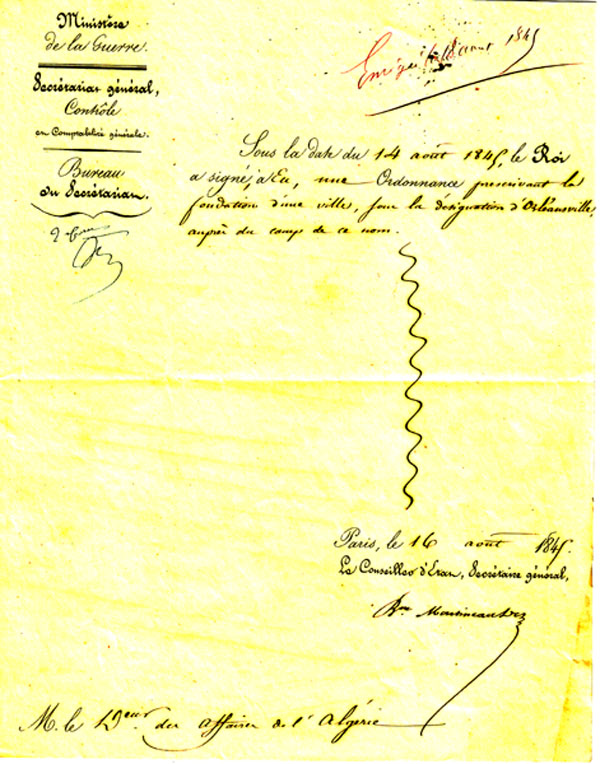 Ministère
de la Guerre.
Secrétariat général,
Contrôle
et Comptabilité générale.
Bureau
du Secrétariat.
août 1845
Sous la date du 14 août 1845, le Roi
a signé, à Eu, une Ordonnance prescrivant la
fondation d'une ville, sous la désignation d'Orléansville,
auprès du camp de ce nom.
Paris, le 16 août 1845.
Le Conseiller d'Etat, Secrétaire général,
Bon
M. le Dteur des affaires de l'Algérie